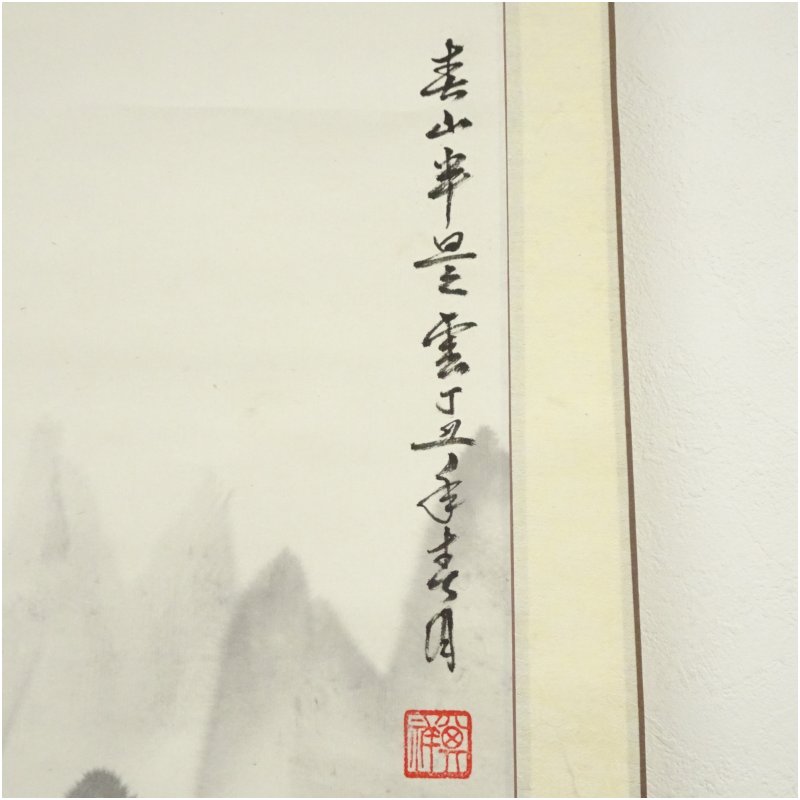 春山半是雲丁丑年春月